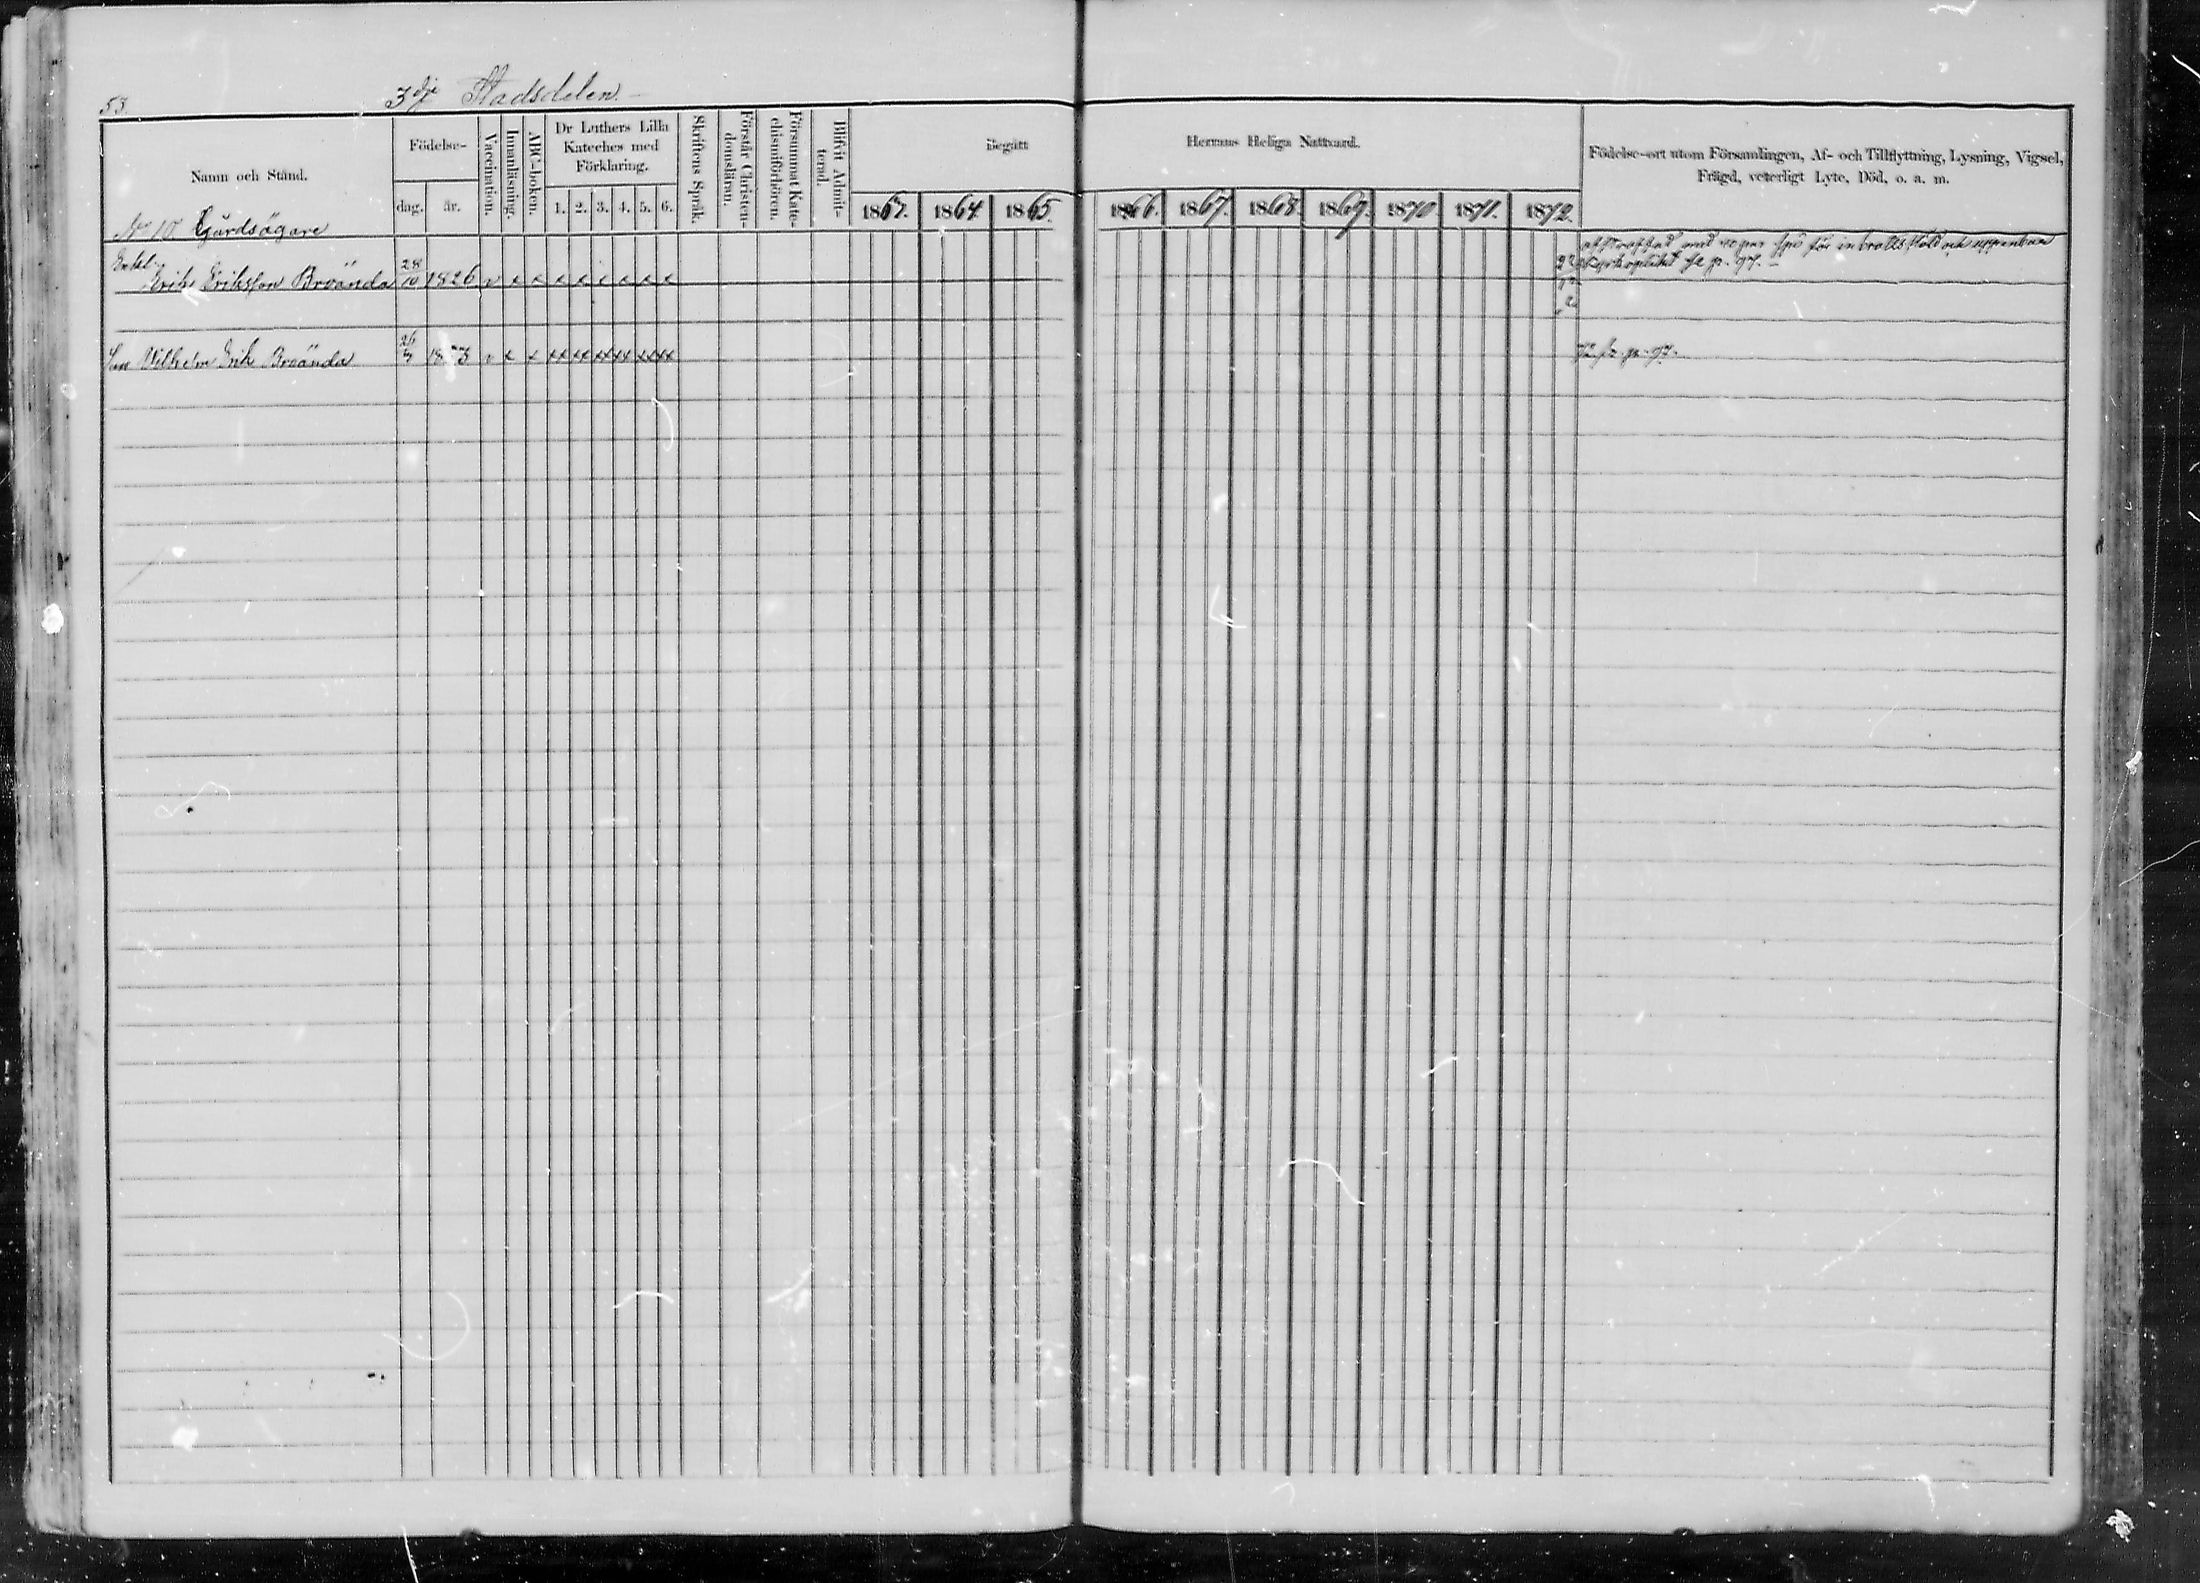 53.
3dje Stadsdelen.
Namn och Stånd.
Födelse-
dag.
år.
Vaccination.
Innanläsning.
ABC-boken.
Dr Luthers Lilla
Kateches med
Förklaring.
1. 2. 3. 4. 5. 6.
Skriftens Språk.
Förstår Christen-
domsläran.
Försummat Kate-
chismiförhören.
Blifvit Admit-
terad.
Begått Herrans Heliga Nattvard.
1863. 1864. 1865. 1866. 1867. 1868. 1869. 1870. 1871. 1872.
Födelse-ort utom Församlingen, Af- och Tillflyttning, Lysning, Vigsel,
Frägd, veterligt Lyte, Död, o. a. m.
No 10 Gårdsägare
Enkl.
Erik Eriksson Broända 28/10 1826 v x x x x x x x x
Son Vilhelm Erik Broända 26/3 x x xx xx xx xx xx xx